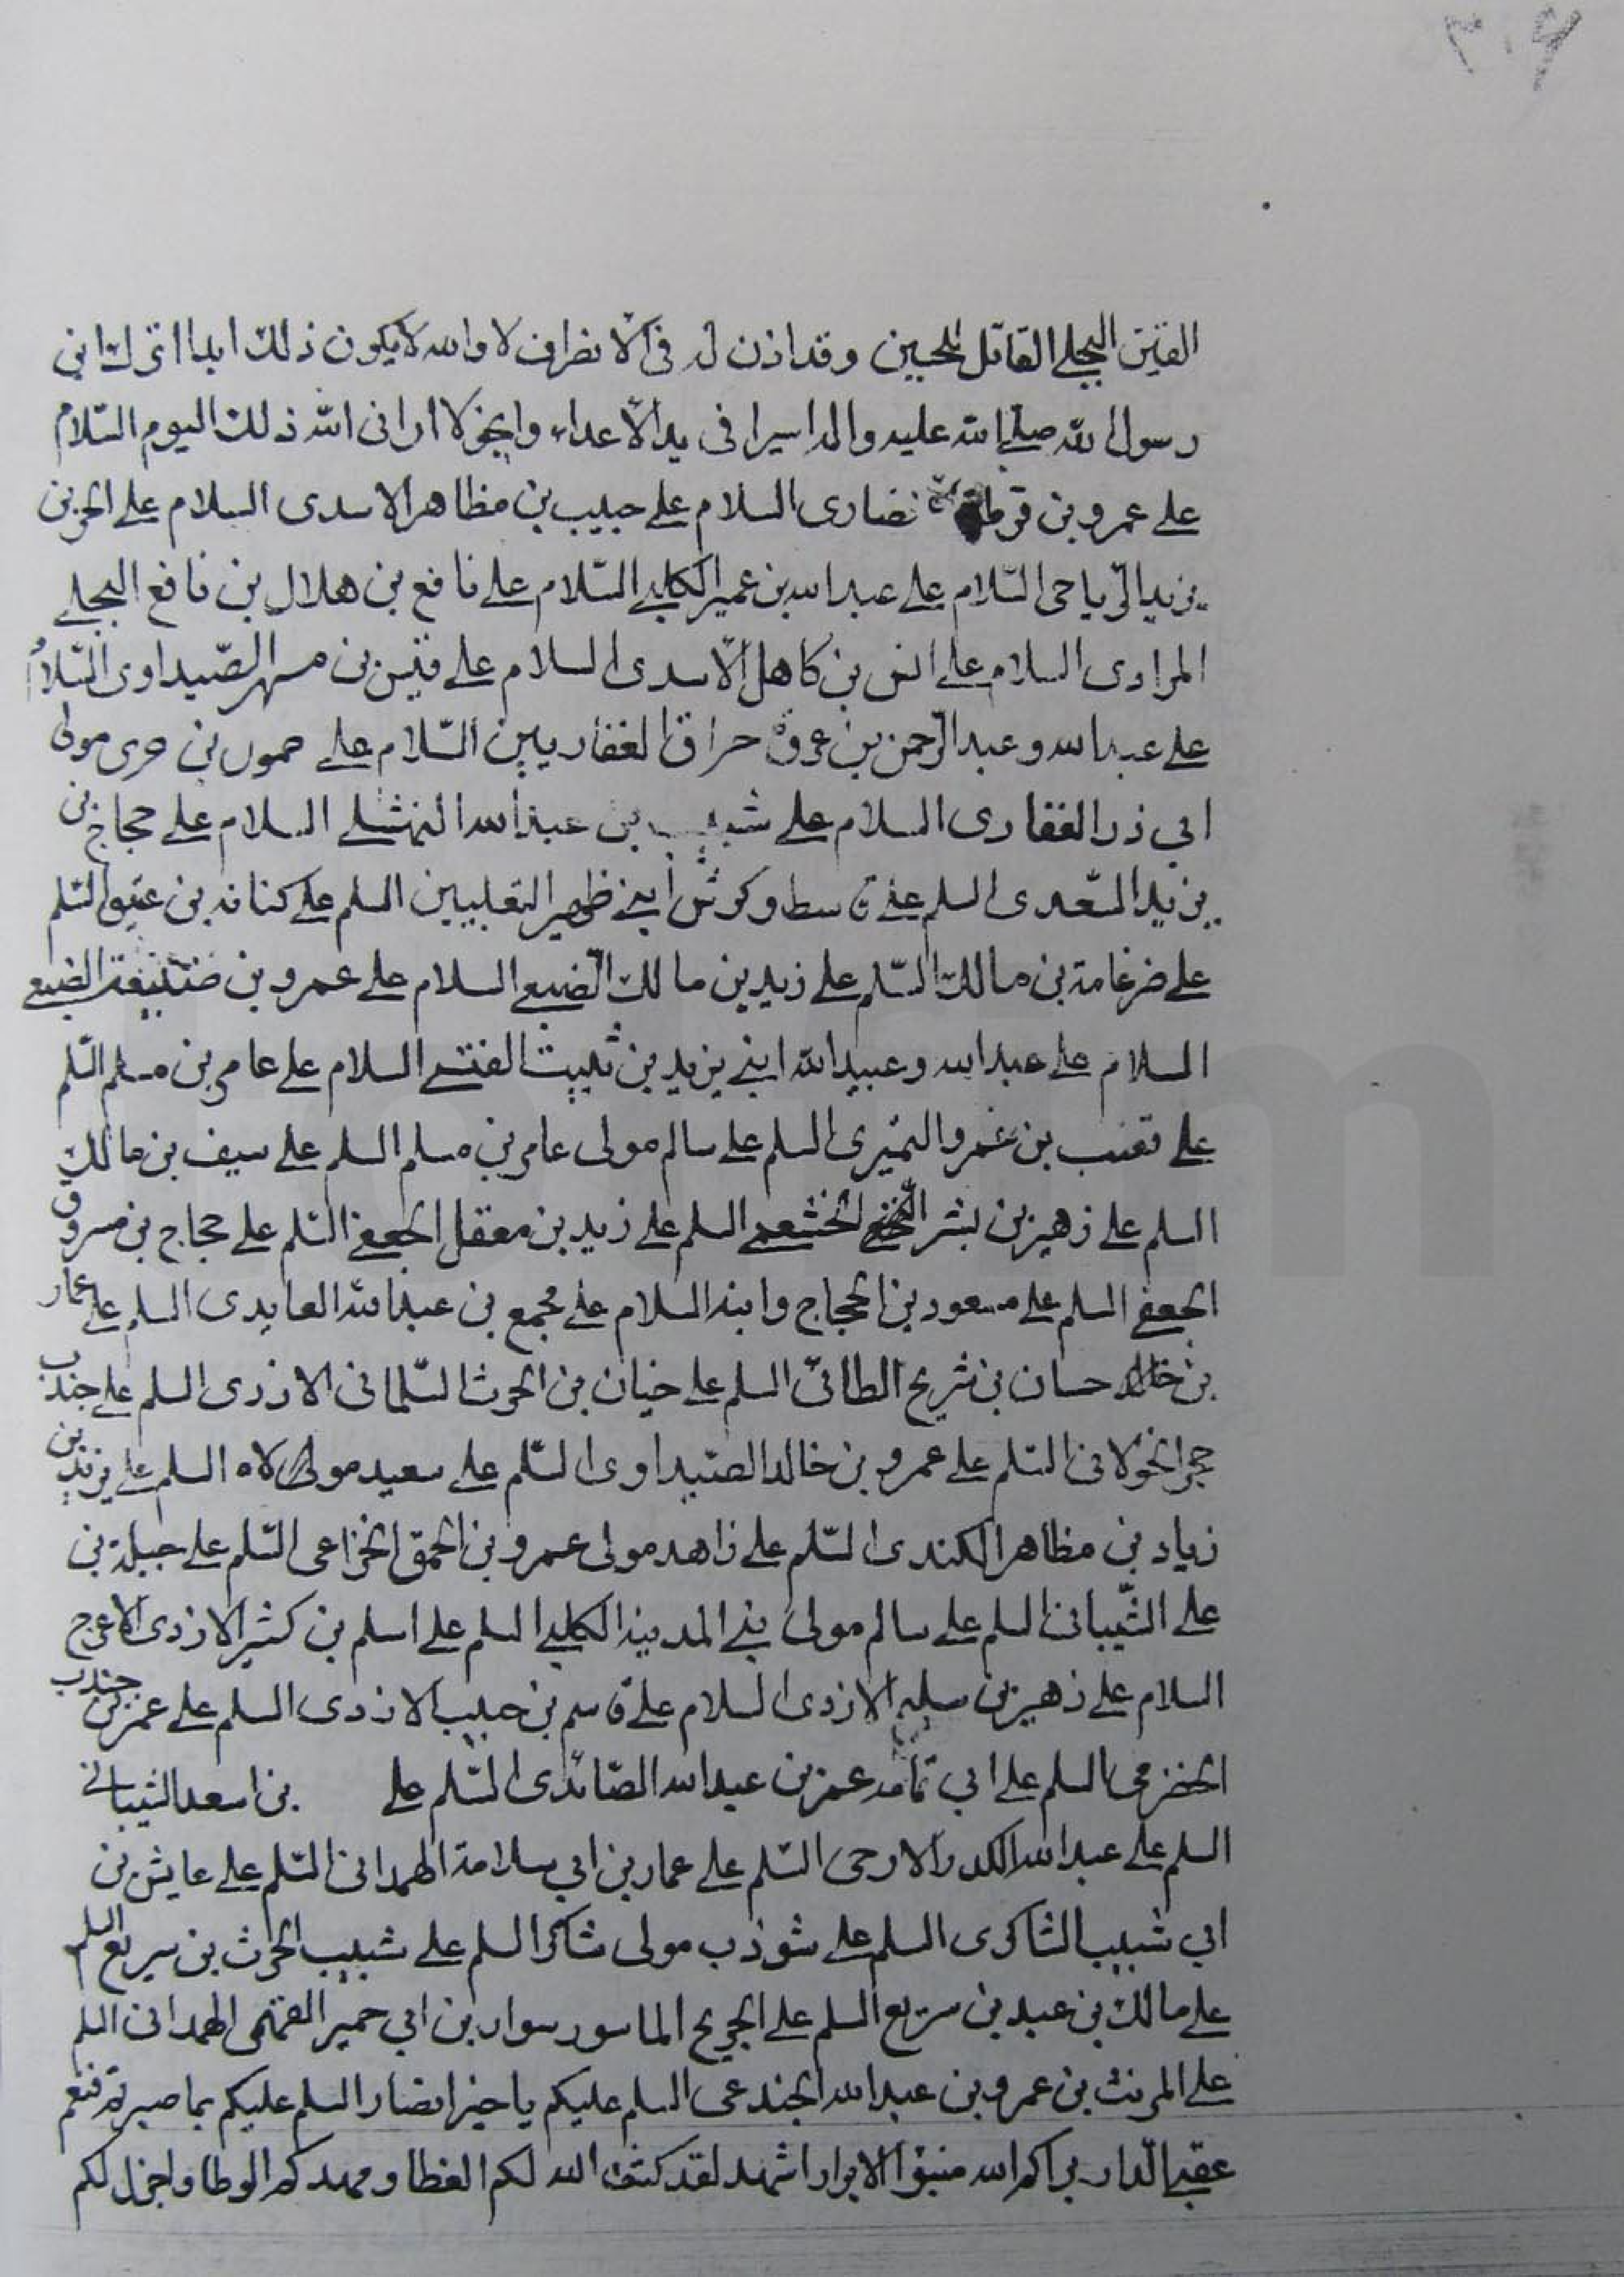 ۳۰۶
القين البجلي القائل للحسين وقد اذن له في الانصراف لا والله لا يكون ذلك ابدا اترك ابن
رسول الله صلى الله عليه واله اسيرا في يد الاعداء وانجو لا اراني الله ذلك اليوم السّلام
على عمرو بن قرظة نصارى السلام على حبيب بن مظاهر الاسدى السلام على الحر بن
يزيد الرّياحى السّلام على عبد الله بن عمير الكلبي السّلام على نافع بن هلال بن نافع البجلي
المرادى السلام على انس بن كاهل الاسدى السلام على قيس بن مسهر الصّيداوى السّلام
على عبد الله وعبد الرّحمن بن عروة حراق الغفاريين السّلام على حموں بن حرى مولى
ابي ذر الغفارى السلام على شبيب بن عبد الله النهشلي السلام على حجاج بن
يزيد السّعدى السلم على قاسط وكرش ابني ظهير التغلبيين السلم على كنانه بن عتيق السّلم
على ضرغامة بن مالك السّلم على زيد بن مالك الضبعي السلام على عمرو بن ضبيعة الضبعي
السلام على عبد الله وعبيد الله ابني يزيد بن ثبيت القيسي السلام على عامر بن مسلم السّلم
على قعنب بن عمرو النميرى السلم على سالم مولى عامر بن مسلم السلم على سيف بن مالك
السلم على زهير بن بشر الخثعمي السلم على زيد بن معقل الجعفي السّلم على حجاج بن مسروق
الجعفي السلم على مسعود بن الحجاج وابنه السلام على مجمع بن عبد الله العايدى السلم على عمار
بن حسان بن شريح الطائىّ السلم على حيان بن الحرث السّلمانى الازدى السلم على جندب
حجر الخولانى السّلم على عمرو بن خالد الصّيداوى السّلم على سعيد مولاه السلم على يزيد بن
زياد بن مظاهر الكندى السّلم على زاهد مولى عمرو بن الحمق الخزاعى السّلم على جبلة بن
على الشّيبانى السلم على سالم مولى بني المدينه الكلبي السلم على اسلم بن كثير الازدى الاعرج
السلام على زهير بن سليم الازدى السلام على قاسم بن حبيب الازدى السلم على عمر بن جندب
الحضرمى السلم على ابي ثمامه عمر بن عبد الله الصّائدى السّلم على بن اسعد الشيباني
السلم على عبد الله الكدر الارحى السّلم على عمار بن ابي سلامة الهمدانى السّلم على عابش بن
ابي شبيب الشاكرى السلم على شوذب مولى شاكر السلم على شبيب الحرث بن سريع السلم
على مالك بن عبد بن سريع السلم على الجريح الماسور سوار بن ابي حمير الفهمى الهمدانى السلم
على المرتث بن عمرو بن عبد الله الجندعى السلم عليكم يا خير انصار السلم عليكم بما صبرتم فنعم
عقبى الدار براكم الله مبوّا الابرار اشهد لقد كشف الله لكم الغطا ومهد لكم الوطا واجزل لكم